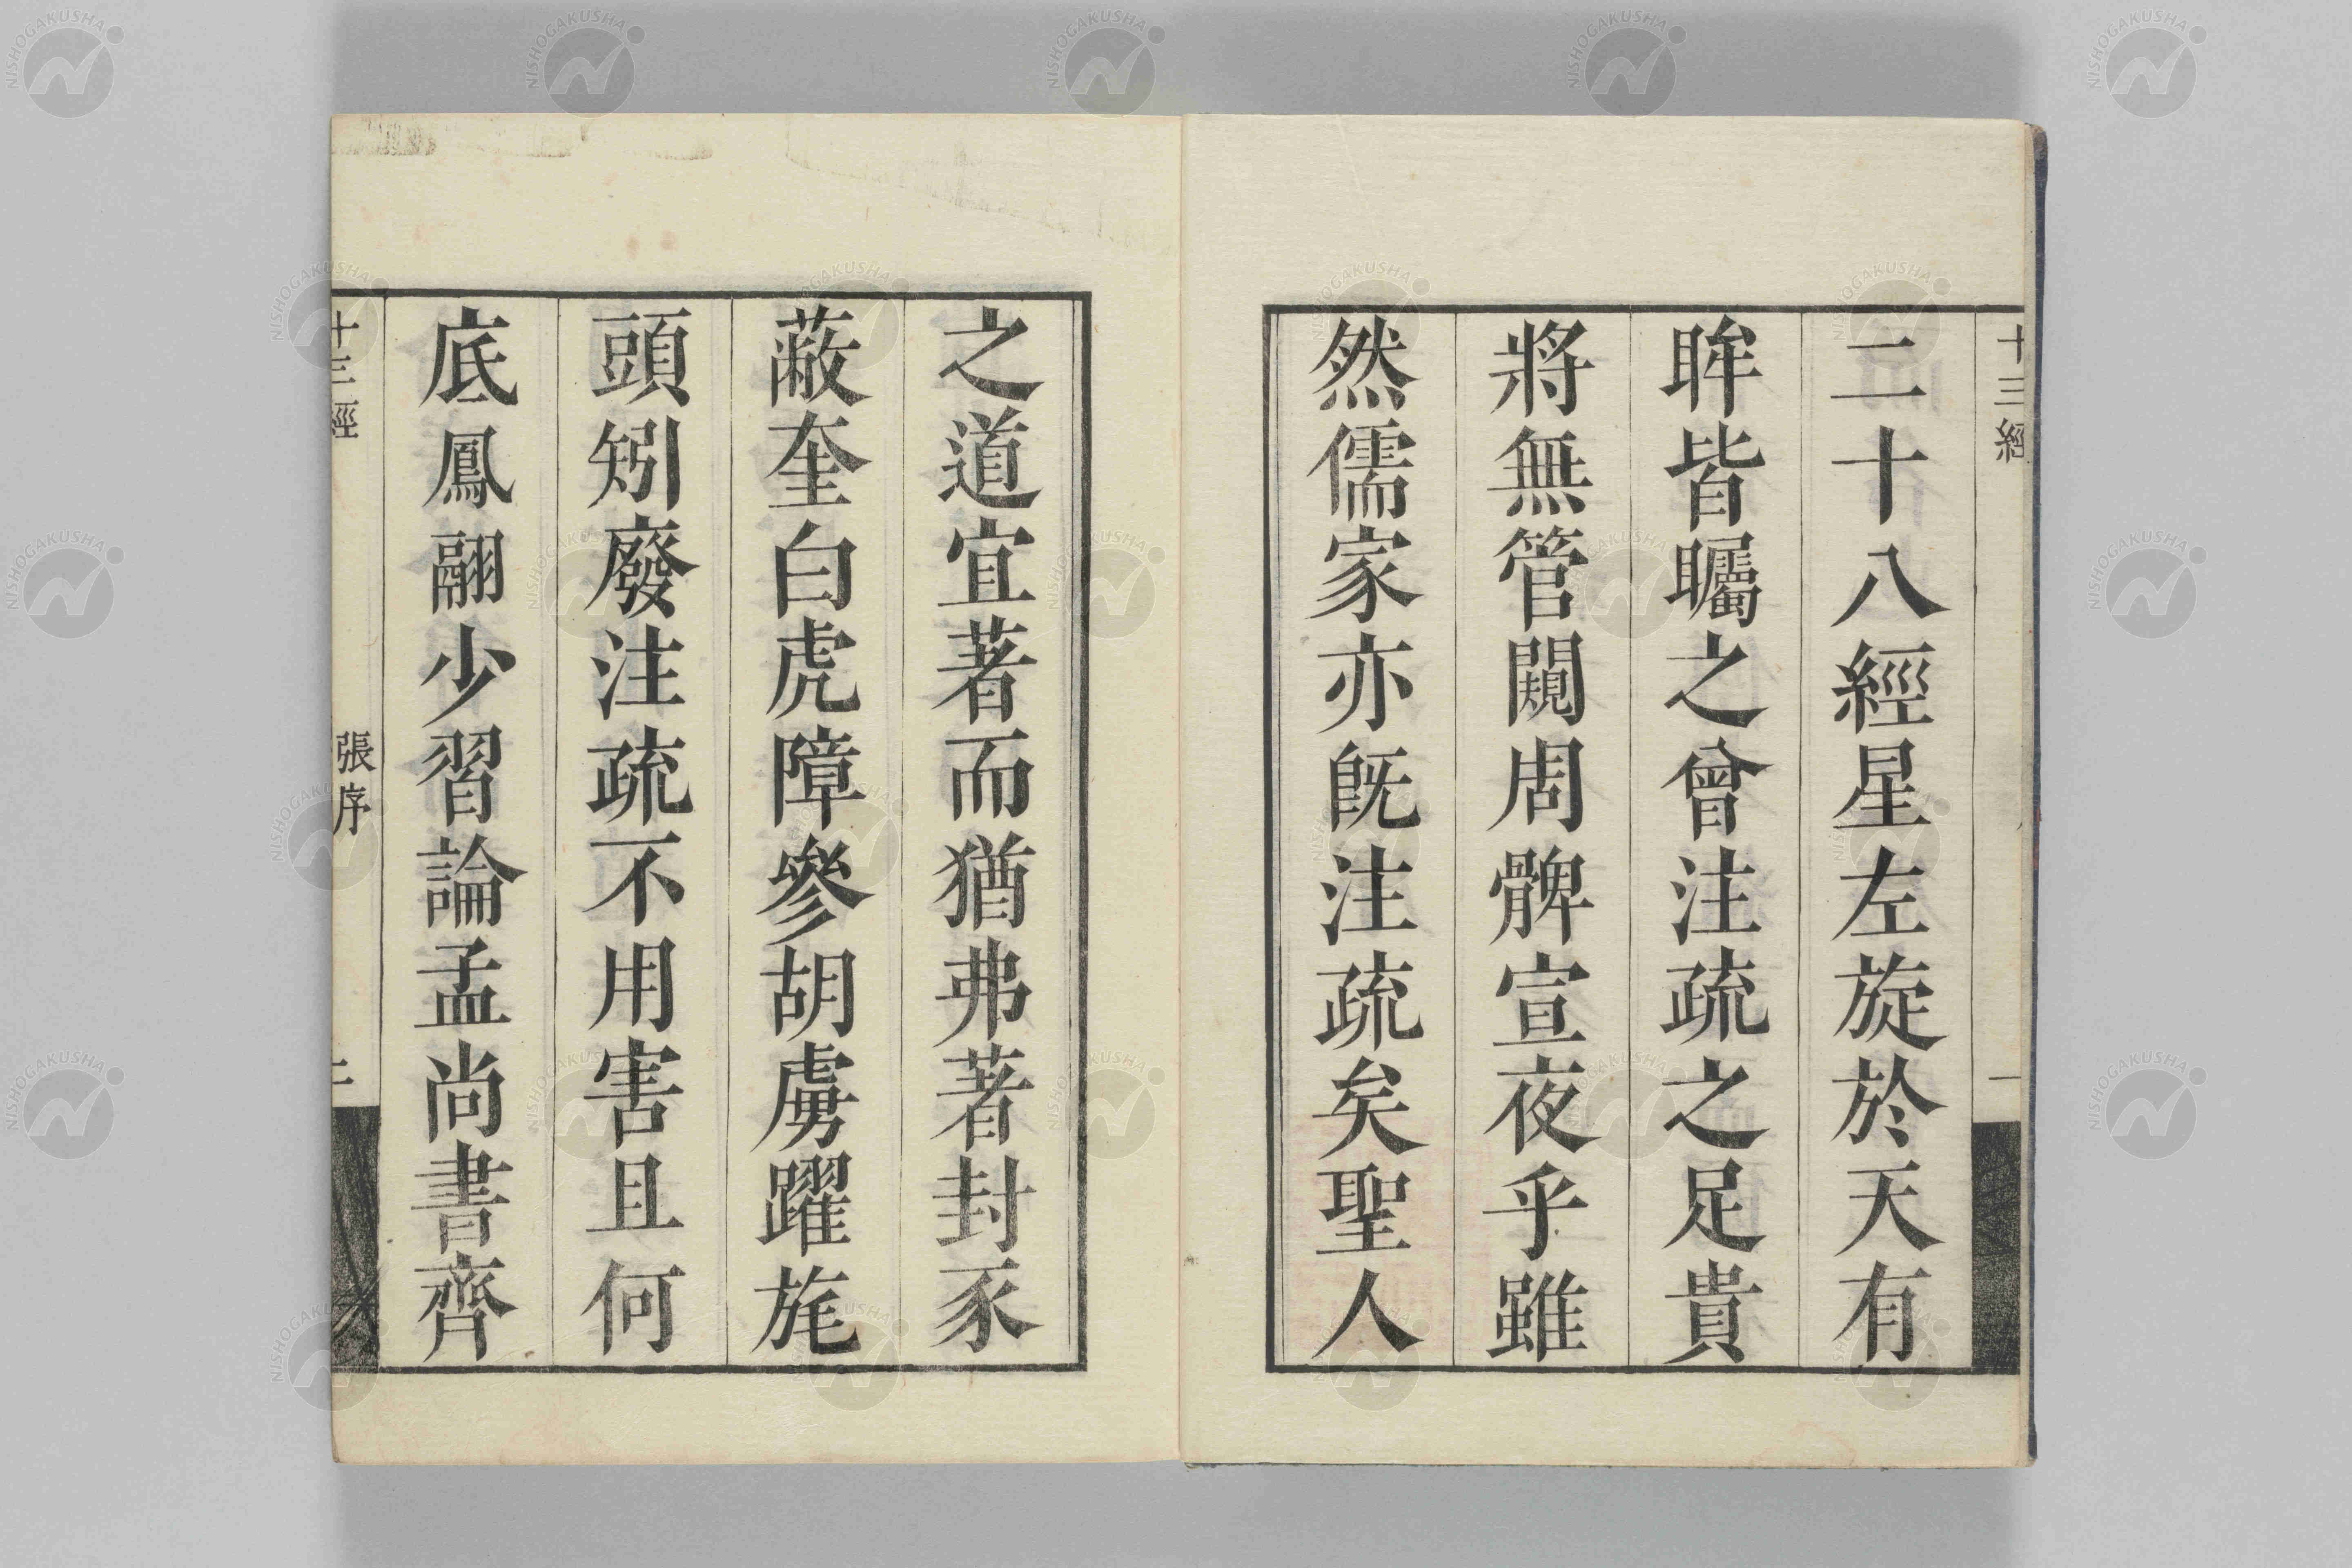 十三經
一
二十八經星左旋於天有
眸皆矚之曾注疏之足貴
將無管闚周髀宣夜乎雖
然儒家亦既注疏矣聖人
之道宜著而猶弗著封豕
蔽奎白虎障參胡虜躍旄
頭矧廢注疏不用害且何
底鳳翮少習論孟尚書齊
十三經
張序
二